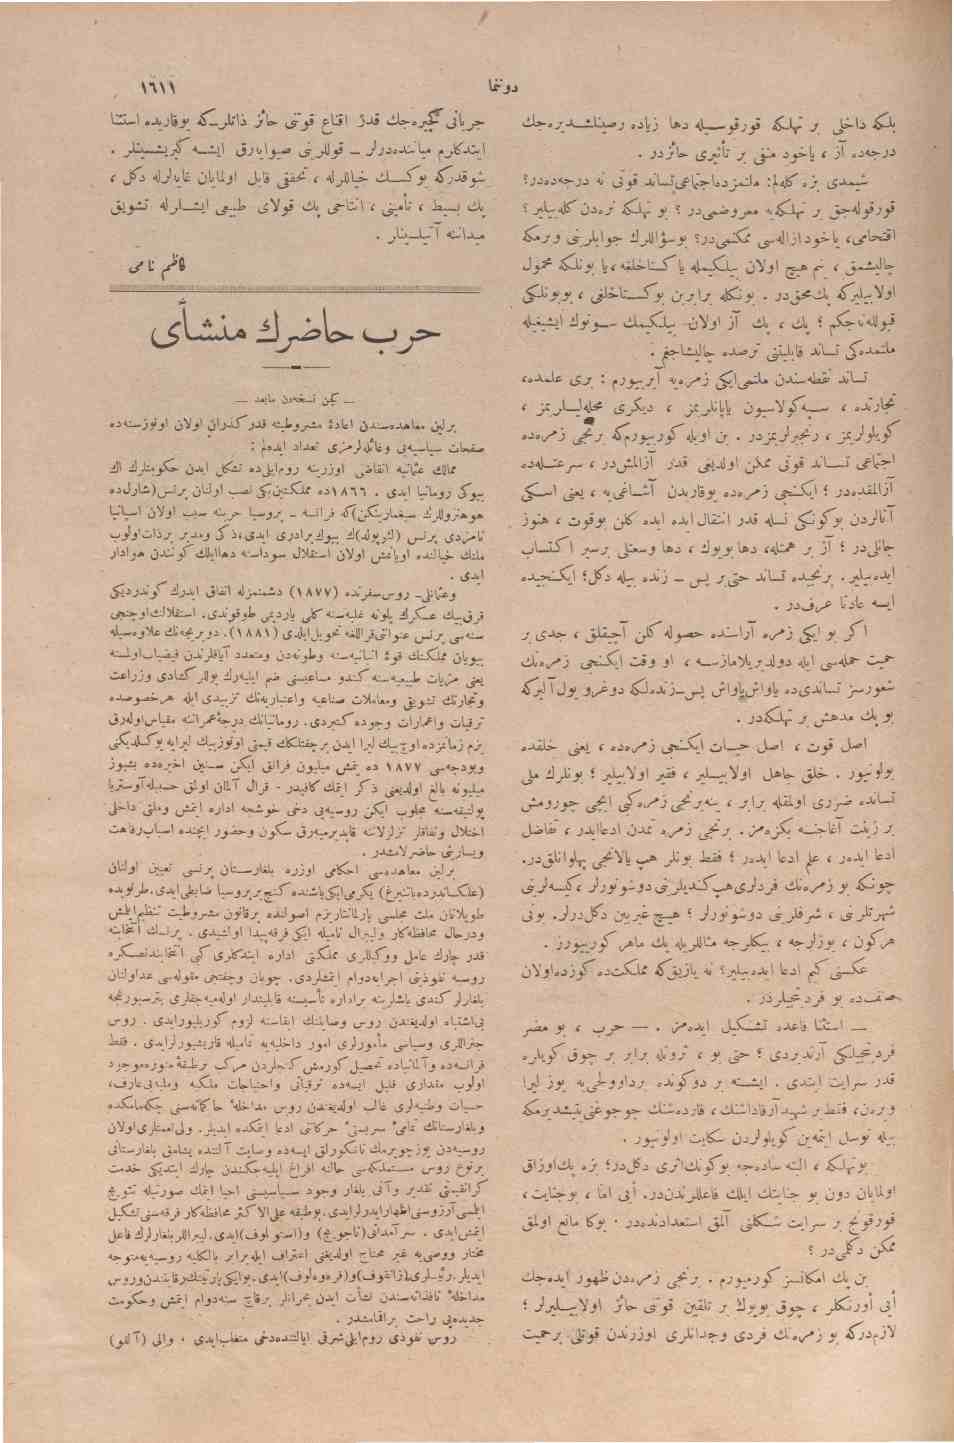 دوننما
١٦١١
بلكه داخلی بر تهلكه قورقوسیله دها زیاده رصینلشدیره‌جك
درجه‌ده آز ، یاخود منفی بر تأثیری حائزدر .
شیمدی بزه كله‌لم: ملتمزده‌اجتماعی تساند قوتی نه درجه‌ده‌در؟
قورقوله‌جق بر تهلكه‌یه معروضمی‌در ؟ بو تهلكه نره‌دن كله‌بیلیر ؟
اقتحامی، یاخود ازاله‌سی ممكنمی‌در؟ بوسؤاللرك جوابلرینی ویرمكه
چالیشمق ، بنم هیچ اولان بیلكیمله یا كستاخلغه ، یا بونلكه محمول
اولابیلیركه پك محق‌در . بونكله برابربن بوكستاخلغی ، بوبونلكی
قبوللنه‌جكم ؛ پك ، پك آز اولان بیلكیمك سونوك ایشیغیله
ملتمده‌كی تساند قابلیتنی ترصده چالیشاجغم .
تساند نقطه‌سندن ملتمی‌ایكی زمره‌یه آیریییورم : بری علمده،
تجارتده ، سپه‌كولاسیون یاپانلریمز ، دیكری محله‌لیلریمز ،
كویلولریمز ، رنجبرلریمزدر . بن اویله كورییورم‌كه برنجی زمره‌ده
اجتماعی تساند قوتی ممكن اولدیغی قدر آزالمش‌در ، سرعتله‌ده
آزالمقده‌در ؛ ایكنجی زمره‌ده یوقاریدن آشاغی‌یه ، یعنی اسكی
آتالردن بوكونكی نسله قدر انتقال ایده ایده كلن بوقوت ، هنوز
جانلی‌در ؛ آز بر همتله، دها بویوك ، دها وسعتلی برسیر اكتساب
ایده‌بیلیر. برنجیده تساند حتی بر پس ـ زنده بیله دكل؛ ایكنجیده
ایسه عادتا عرف‌در .
اكر بو ایكی زمره آراسنده حصوله كلن آچیقلق ، جدی بر
حمیت حمله‌سی ایله دولدیریلامازسه ، او وقت ایكنجی زمره‌نك
شعورسز تساندی‌ده یاواش یاواش پس‌ـ‌زنده‌لكه دوغرو یول آلیركه
بو پك مدهش بر تهلكه‌در .
اصل قوت ، اصل حیات ایكنجی زمره‌ده ، یعنی خلقده
بولونیور . خلق جاهل اولابیلیر ، فقیر اولابیلیر ؛ بونلرك ملی
تسانده ضرری اولمقله برابر ، ینه‌برنجی زمره‌كبی ایچی چورومش
بر زینت آغاجنه بكزه‌مز. برنجی زمره تمدن ادعاایدر ، تفاضل
ادعا ایدر ، علم ادعا ایدر ؛ فقط بونلر هپ یالانجی پهلوانلق‌در.
چونكه بو زمره‌نك فردلری‌هپ‌كندیلرینی‌دوشونورلر ، كیسه‌لرینی
شهرتلرینی ، شرفلرینی دوشونورلر ؛ هیچ غیربین دكل‌درلر. بونی
هركون ، یوزلرجه ، بیكلرجه مثاللریله پك ماهر كورییورز .
عكسنی كیم ادعا ایده‌بیلیر؟ نه یازیق‌كه مملكتده كوزده‌اولان
صنف‌ده بو فردجیلردر .
— استثنا قاعده تشكیل ایده‌مز . — حرب ، بو مضر
فردجیلكی آرتدیردی ؛ حتی بو ، ثروتله برابر بر چوق كویلره
قدر سرایت ایتدی . ایشته بر دوكونده برداوولجی‌یه یوز لیرا
ویره‌ن، فقط بر شهید آرقاداشنك ، قارده‌شنك چوجوغنی یتیشدیرمكه
بیله توسل ایتمه‌ین كویلولردن شكایت اولونیور .
بوتهلكه ، البته ساده‌جه بوكونك‌اثری دكل‌در؛ بزه پك‌اوزاق
اولمایان دون بو جنایتك ایلك فاعللرندن‌در. أیی اما ، بوجنایت،
قورقونج بر سرایت شكلنی آلمق استعدادنده‌در . بوكا مانع اولمق
ممكن دكلمی‌در ؟
بن پك امكانسز كورمیورم . برنجی زمره‌دن ظهور ایده‌جك
أیی أورنكلر ، چوق بویوك بر تلقین قوتنی حائز اولابیلیرلر ؛
لازم‌دركه بو زمره‌نك فردی وجدانلری اوزرندن قوتلی برحمیت
جریانی كچیره‌جك قدر اقناع قوتنی حائز ذاتلرـكه یوقاریده استثنا
ایتدكلرم میاننده‌درلر ـ قوللرینی صیوایه‌رق ایشه كیریشسینلر .
شوقدركه یوكسك خیاللرله ، تحققی قابل اولمایان غایه‌لرله دكل ،
پك بسیط ، تأمینی ، انتاجی پك قولای طبیعی ایشلرله تشویق
میداننه آتیلسینلر .
كاظم نامی
حرب حاضرك منشأی
— كچن نسخه‌دن مابعد —
برلین معاهده‌سندن اعادهٔ مشروطیته قدر كذران اولان اوتوزسنه‌ده
صفحات سیاسیه‌یی وغائله‌لرمزی تعداد ایده‌لم :
ممالك عثمانیه انقاضی اوزرینه روم‌ایلی‌ده تشكل ایدن حكومتلرك اك
بیوكی رومانیا ایدی . ١٨٦٦ده مملكتین‌بكی نصب اولنان پرنس(شارل‌ده
هوهنزوللرن سیغمارینكن)كه فرانسه ـ پروسیا حربنه سبب اولان اسپانیا
نامزدی پرنس (لئوپولد)ك بیوك‌برادری ایدی،ذكی ومدبر برذات‌اولوب
ملتك خیالنده اویانمش اولان استقلال سوداسنه دهاایلك كونندن هوادار
ایدی .
وعثمانلی‌ـ روس‌سفرنده (١٨٧٧) دشمنمزله اتفاق ایدرك كوندردیكی
قرق‌بیك عسكرك پلونه غلبه‌سنه كلی یاردیمی طوقوندی. استقلالك‌اوچنجی
سنه‌سی پرنس عنوانی‌قراللغه تحویل‌ایلدی (١٨٨١). دوبریجه‌نك علاوه‌سیله
بیویان مملكتك قوهٔ انباتیه‌سنه وطونه‌دن ومتعدد آیاقلرندن فیضیاب‌اولمسنه
یعنی مزیات طبیعیه‌سنه كندو مساعیسنی ضم ایلیه‌رك یوللر كشادی وزراعت
وتجارتك تشویقی ومعاملات صناعیه واعتباریه‌نك تزییدی ایله هرخصوصده
ترقیات واعمارات وجوده كتیردی. رومانیانك درجهٔ‌عمراننه مقیاس‌اوله‌رق
بزم زمانمزده اوچ‌بیك لیرا ایدن برچفتلكك قیمتی اوتوزبیك لیرایه یوكسلدیكنی
وبودجه‌سی ١٨٧٧ ده یتمش میلیون فرانق ایكن سنین اخیره‌ده بشیوز
میلیونه بالغ اولدیغنی ذكر ایتمك كافیدر . قرال آلمان اولمق حسبیله‌آوستریا
پولتیقه‌سنه مجلوب ایكن روسیه‌یی دخی خوشجه اداره ایتمش وملتی داخلی
اختلال ونفاقلر تزلزلاتنه قاپدیرمیه‌رق سكون وحضور ایچنده اسباب‌رفاهت
ویساریتنی حاضرلامشدر .
برلین معاهده‌سی احكامی اوزره بلغارستان پرنسی تعیین اولنان
(علكساندرده‌باتنبرغ) یكرمی‌ایكی‌یاشنده كنج‌بر پروسیا ضابطی‌ایدی.طرنویده
طوپلانان ملت مجلسی پارلمانتاریزم اصولنده برقانون مشروطیت تنظیم‌ایلمش
ودرحال محافظه‌كار ولیبرال نامیله ایكی فرقه‌پیدا اولمشیدی . پرنسك انتخابنه
قدر چارك عامل ووكیللری مملكتی اداره ایتدكلری كبی انتخابندنصكره
روسیه نفوذینی اجرایه‌دوام ایتمشلردی. چوبان وچفتجی مقوله‌سی عداولنان
بلغارلر كندی باشلرینه براداره تأسیسنه قابلیتدار اوله‌میه‌جقلری پترسبورغجه
بی‌اشتباه اولدیغندن روس وصایتنك ابقاسنه لزوم كوریلیورایدی . روس
جنراللری وسیاسی مأمورلری امور داخلیه‌یه تامیله قاریشیورلرایدی . فقط
فرانسه‌ده وآلمانیاده تحصیل كورمش كنجلردن مركب برطبقهٔ منوره‌موجود
اولوب مقداری قلیل ایسه‌ده ترقیاتی واحتیاجات ملكیه وملیه‌یی‌عارف،
حسیات وطنیه‌لری غالب اولدیغندن روس مداخلهٔ حاكمانه‌سنی چكه‌مامكده
وبلغارستانك تمامیٔ سربستیٔ حركاتنی ادعا ایتمكده ایدیلر. ولی‌نعمتلری‌اولان
روسیه‌دن یوزچویرمك نانكورلق ایسه‌ده وسایت آلتنده یشامق بلغارستانی
برنوع روس مستملكه‌سی حالنه افراغ ایلیه‌جكندن چارك ایتدیكی خدمت
كرانقیمتنی تقدیر وآنی بلغار وجود سیاسیسنی احیا ایتمك صورتیله تتویج
ایلمسی‌آرزوسنی‌اظهارایدرلرایدی.بوطبقه علی‌الاكثر محافظه‌كار فرقه‌سنی‌تشكیل
ایتمش‌ایدی . سرآمدانی(ناچوویچ) و(استویلوف)ایدی.لیبراللر‌بلغارلرك فاعل
مختار ووصی‌یه غیر محتاج اولدیغنی اعتراف ایله‌برابر بالكلیه روسیه‌یه‌متوجه
ایدیلر.رئیسلری(زانقوف)و(قره‌وه‌لوف)ایدی.بوایكی‌پارتینك‌رقابتندن‌وروس
مداخلهٔ نافذانه‌سندن نشأت ایدن بحرانلر برقاچ سنه‌دوام ایتمش وحكومت
جدیده‌یی راحت براقمامشدر .
روس نفوذی روم‌ایلی‌شرقی ایالتنده‌دخی متغلب‌ایدی . والی (آله‌قو)